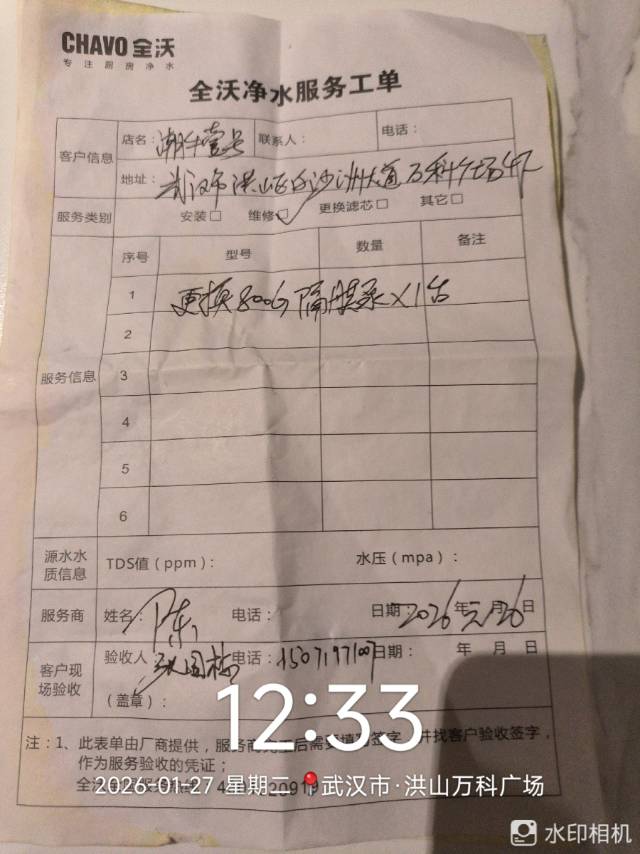 CHAVO 全沃
专注厨房净水
全沃净水服务工单
客户信息
店名：潮牛壹号 联系人： 电话：
地址：武汉市洪山区白沙洲大道万科广场4F
服务类别 安装□ 维修☑ 更换滤芯□ 其它□
服务信息
序号 型号 数量 备注
1 更换800G隔膜泵×1台
2
3
4
5
6
源水水质信息 TDS值（ppm）： 水压（mpa）：
服务商 姓名：陈 电话： 日期：2026年元月26日
客户现场验收
验收人 国栋 电话：15071971007 日期： 年 月 日
（盖章）：
12:33
注：1、此表单由厂商提供，服务商完工后需要填写签字，并找客户验收签字，
作为服务验收的凭证；
2026-01-27 星期二 武汉市·洪山万科广场
水印相机